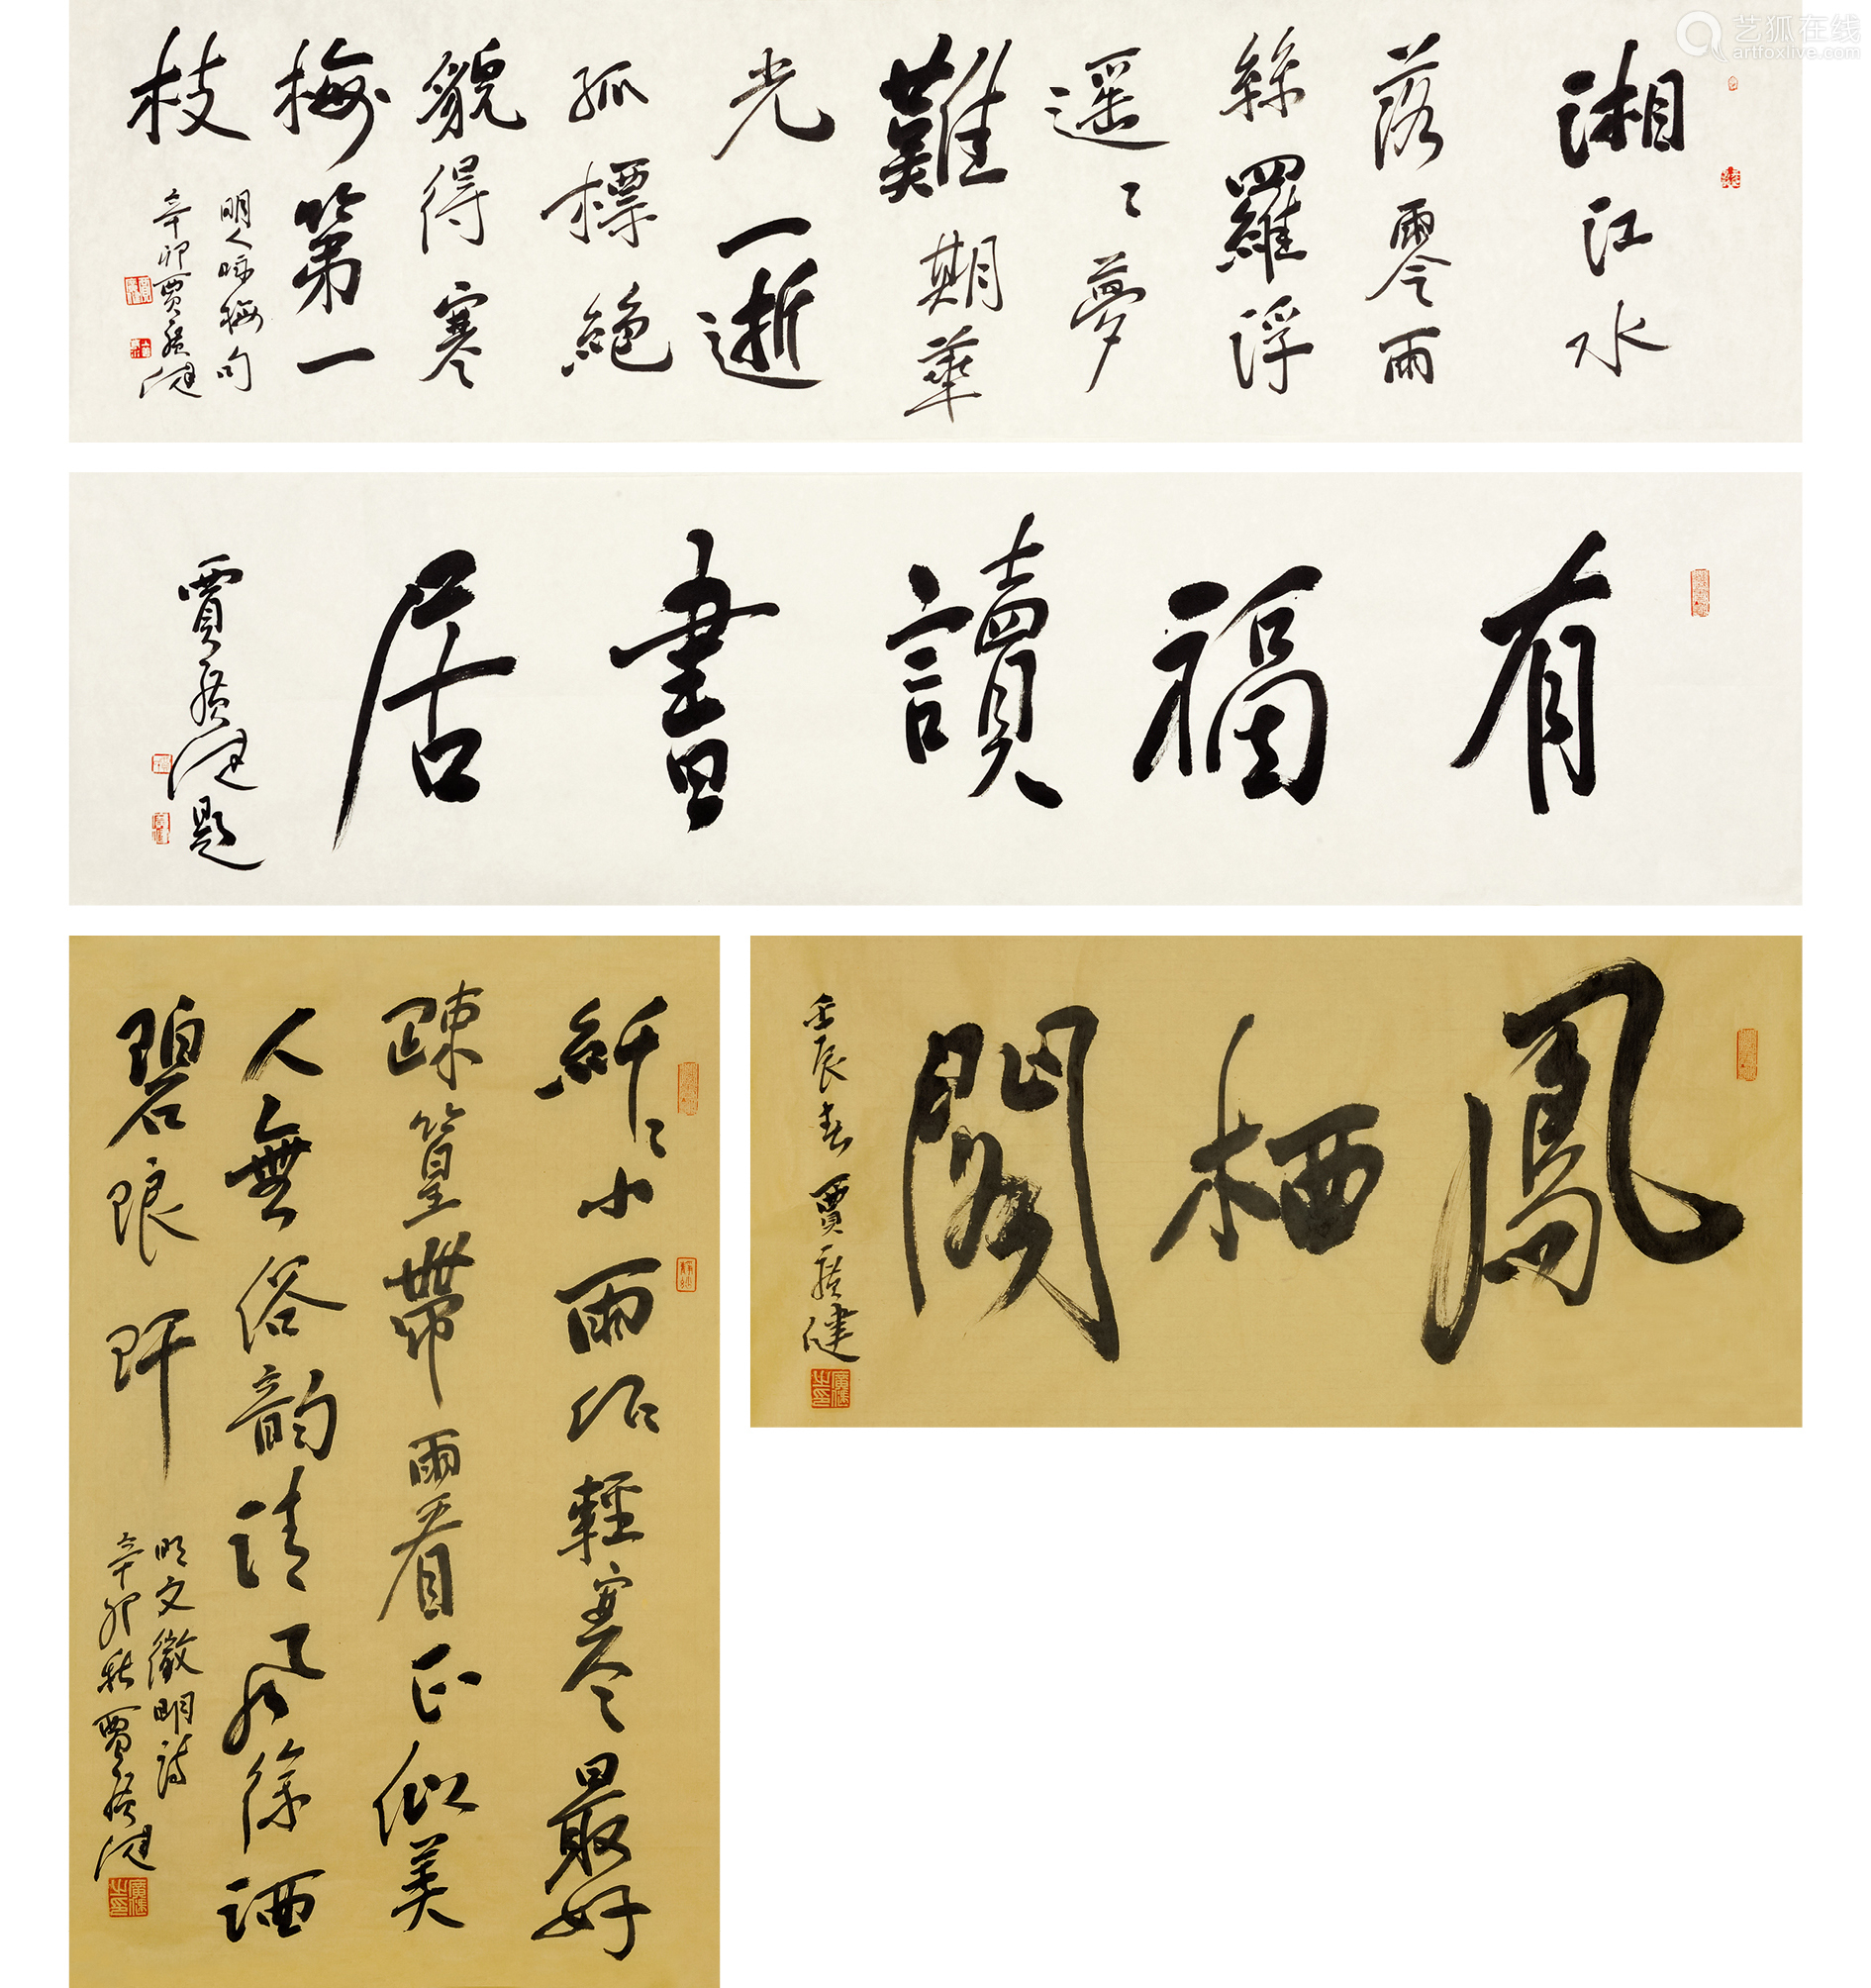 艺狐在线
artfoxlive.com
湘江水
落零雨
絲羅浮
遥〻夢
難期華
光一逝
孤標絕
貌得寒
梅第一
枝
明人咏梅句
辛卯賈廣健
有福讀書居
賈廣健題
鳳栖閣
壬辰春賈廣健
廣健之印
纤〻小雨作輕寒最好
疎篁帶雨看正似美
人無俗韻清風徐洒
碧琅玕
明文徵明詩
辛卯秋賈廣健
廣健之印